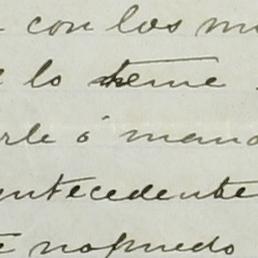 con los m
lo teme
rle ó mand
ntecedente
nopuedo